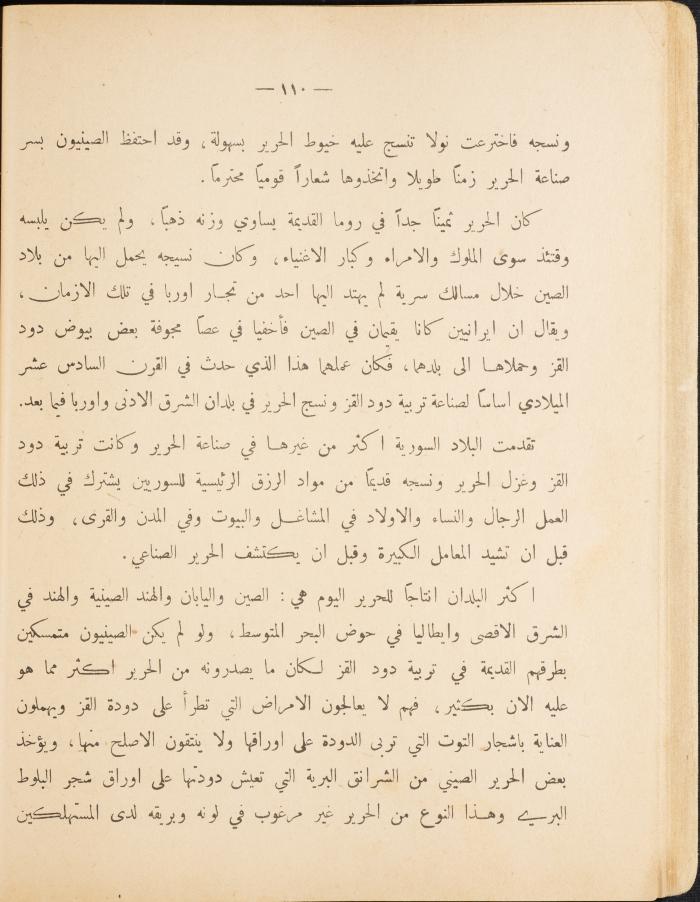 — ١١٠ —
ونسجه فاخترعت نولا تنسج عليه خيوط الحرير بسهولة، وقد احتفظ الصينيون بسر
صناعة الحرير زمناً طويلا واتخذوها شعاراً قومياً محترماً.
كان الحرير ثميناً جداً في روما القديمة يساوي وزنه ذهباً، ولم يكن يلبسه
وقتئذ سوى الملوك والامراء وكبار الاغنياء، وكان نسيجه يحمل اليها من بلاد
الصين خلال مسالك سرية لم يهتد اليها احد من تجار اوربا في تلك الازمان،
ويقال ان ايرانيين كانا يقيمان في الصين فأخفيا في عصاً مجوفة بعض بيوض دود
القز وحملاها الى بلدهما، فكان عملهما هذا الذي حدث في القرن السادس عشر
الميلادي اساساً لصناعة تربية دود القز ونسج الحرير في بلدان الشرق الادنى واوربا فيما بعد.
تقدمت البلاد السورية اكثر من غيرها في صناعة الحرير وكانت تربية دود
القز وغزل الحرير ونسجه قديماً من مواد الرزق الرئيسية للسوريين يشترك في ذلك
العمل الرجال والنساء والاولاد في المشاغل والبيوت وفي المدن والقرى، وذلك
قبل ان تشيد المعامل الكبيرة وقبل ان يكتشف الحرير الصناعي.
اكثر البلدان انتاجاً للحرير اليوم هي: الصين واليابان والهند الصينية والهند في
الشرق الاقصى وايطاليا في حوض البحر المتوسط، ولو لم يكن الصينيون متمسكين
بطرقهم القديمة في تربية دود القز لكان ما يصدرونه من الحرير اكثر مما هو
عليه الان بكثير، فهم لا يعالجون الامراض التي تطرأ على دودة القز ويهملون
العناية باشجار التوت التي تربى الدودة على اوراقها ولا ينتقون الاصلح منها، ويؤخذ
بعض الحرير الصيني من الشرانق البرية التي تعيش دودتها على اوراق شجر البلوط
البري وهذا النوع من الحرير غير مرغوب في لونه وبريقه لدى المستهلكين